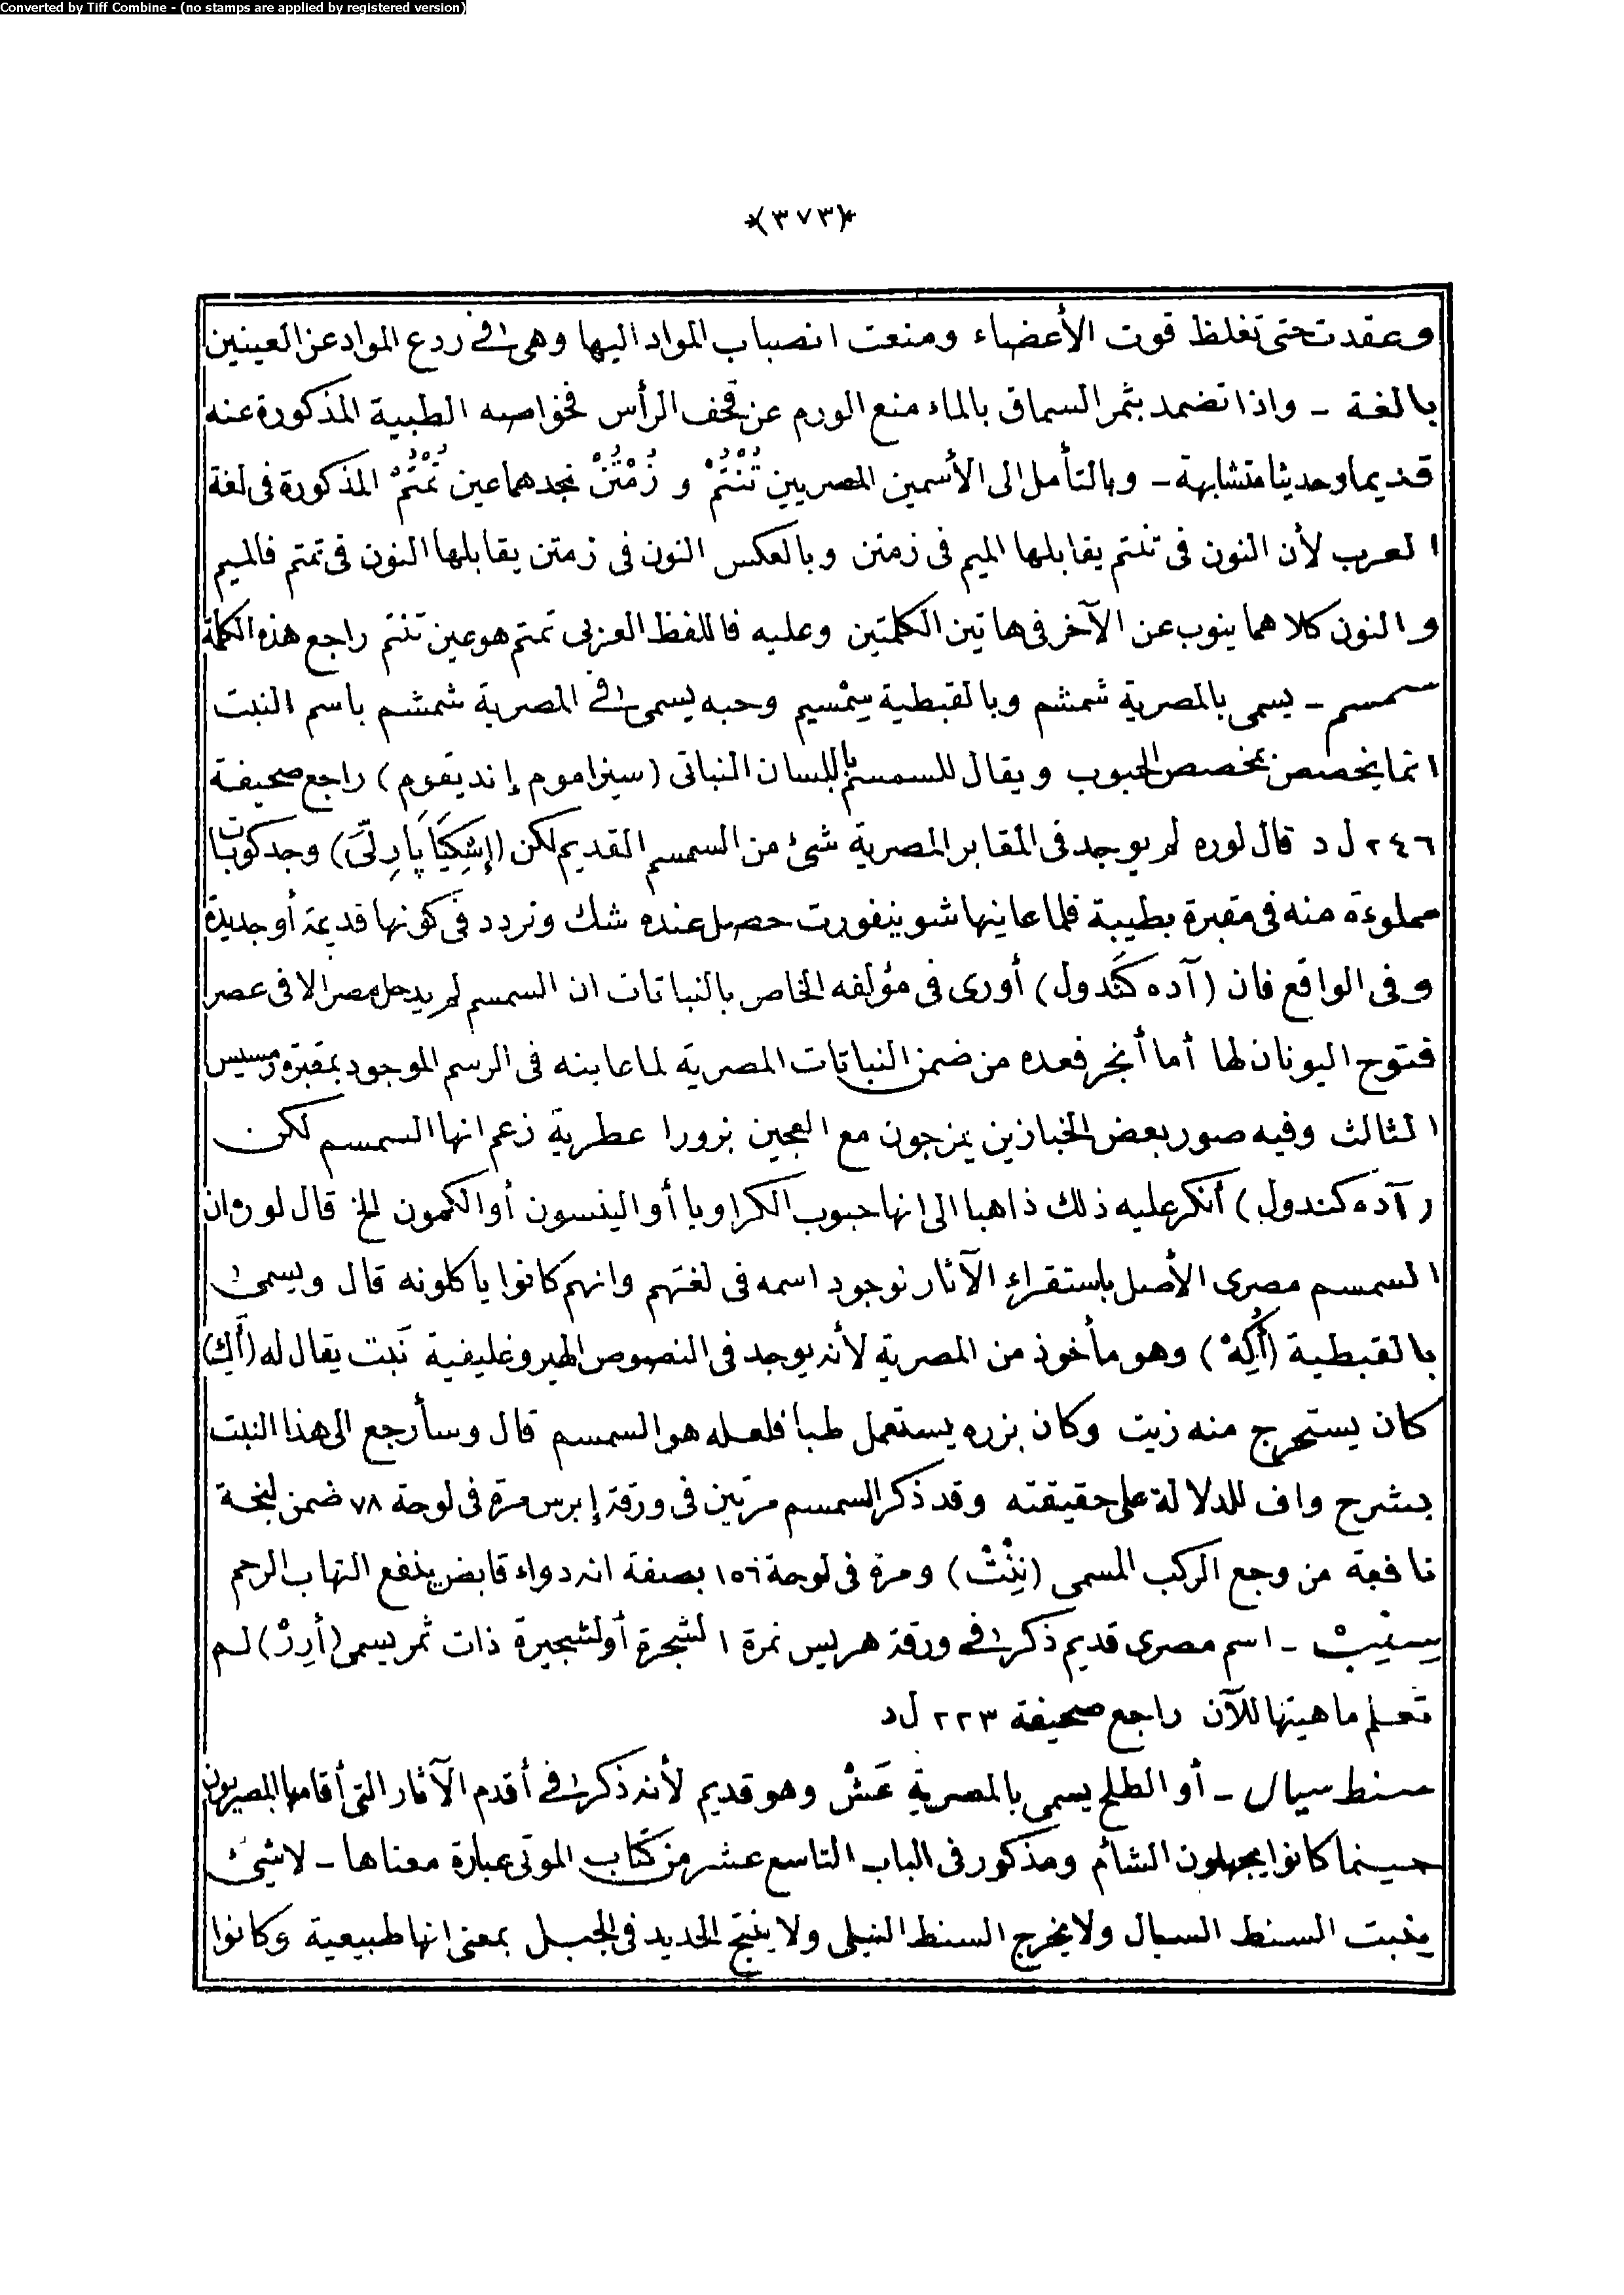 Converted by Tiff Combine - (no stamps are applied by registered version)
*(٣٧٣)*
وعقدت حتى تغلظ قوت الأعضاء ومنعت انصباب المواد اليها وهى فى ردع المواد عن العينين
بالغة ـ واذا تضمد بثمر السماق بالماء منع الورم عن قحف الرأس فخواصه الطبية المذكورة عنه
قديما وحديثا متشابهة ـ وبالتأمل الى الأسمين المصريين تُنْتُمْ و زُمْتُنْ نجدهما عين تُمْتُمْ المذكورة فى لغة
العرب لأن النون فى تنتم يقابلها الميم فى زمتن وبالعكس النون فى زمتن يقابلها النون فى تمتم فالميم
والنون كلاهما ينوب عن الآخر فى هاتين الكلمتين وعليه فاللفظ العربى تمتم هو عين تنتم راجع هذه الكلمة
سمسم ـ يسمى بالمصرية شمشم وبالقبطية سِمْسيم وحبه يسمى فى المصرية شمشم باسم النبت
انما يخصص بمخصص الحبوب ويقال للسمسم باللسان النباتى (سيزاموم إنديقوم) راجع صحيفة
٢٤٦ ل د قال لوره لم يوجد فى المقابر المصرية شئ من السمسم القديم لكن (إشِكِيَا پَارِلّىَ) وجد كوبات
مملوءة منه فى مقبرة بطيبة فلما عاينها شوينفورت حصل عنده شك وتردد فى كونها قديمة أو جديدة
وفى الواقع فان (آده كَندول) أورى فى مؤلفه الخاص بالنباتات ان السمسم لم يدخل مصر الا فى عصر
فتوح اليونان لها أما أنجر فعده من ضمن النباتات المصرية لما عاينه فى الرسم الموجود بمقبرة رمسيس
الثالث وفيه صور بعض الخبازين يمزجون مع العجين بزورا عطرية زعم انها السمسم لكن
(آده كندول) أنكر عليه ذلك ذاهبا الى انها حبوب الكراويا أو الينسون أو الكمون الخ قال لوره ان
السمسم مصرى الأصل باستقراء الآثار لوجود اسمه فى لغتهم وانهم كانوا ياكلونه قال ويسمى
بالقبطية (أُكِهْ) وهو مأخوذ من المصرية لأنه يوجد فى النصوص الهيروغليفية نبت يقال له (أَكِ)
كان يستخرج منه زيت وكان بزره يستعمل طبا فلعله هو السمسم قال وسأرجع الى هذا النبت
بشرح واف للدلالة على حقيقته وقد ذكر السمسم مرتين فى ورقة إبرس مرة فى لوحة ٧٨ ضمن لبخة
نافعة من وجع الركب المسمى (نِثِثْ) ومرة فى لوحة ١٥٦ بصفة انه دواء قابض ينفع التهاب الرحم
اسم مصرى قديم ذكر فى ورقة هريس نمرة ١ لشجرة أو لشجيرة ذات ثمر يسمى (أرِرْ) لم
تعلم ماهيتها للآن راجع صحيفة ٢٢٣ ل د
سنط سيال ـ أو الطلح يسمى بالمصرية عَشْ وهو قديم لأنه ذكر فى أقدم الآثار التى أقامها المصريون
حينما كانوا يجهلون الشأم ومذكور فى الباب التاسع عشر من كتاب الموتى عبارة معناها ـ لا شئ
ينبت السنط السيال ولا يخرج السنط النيلى ولا ينتج الحديد فى الجبل بمعنى انها طبيعية وكانوا